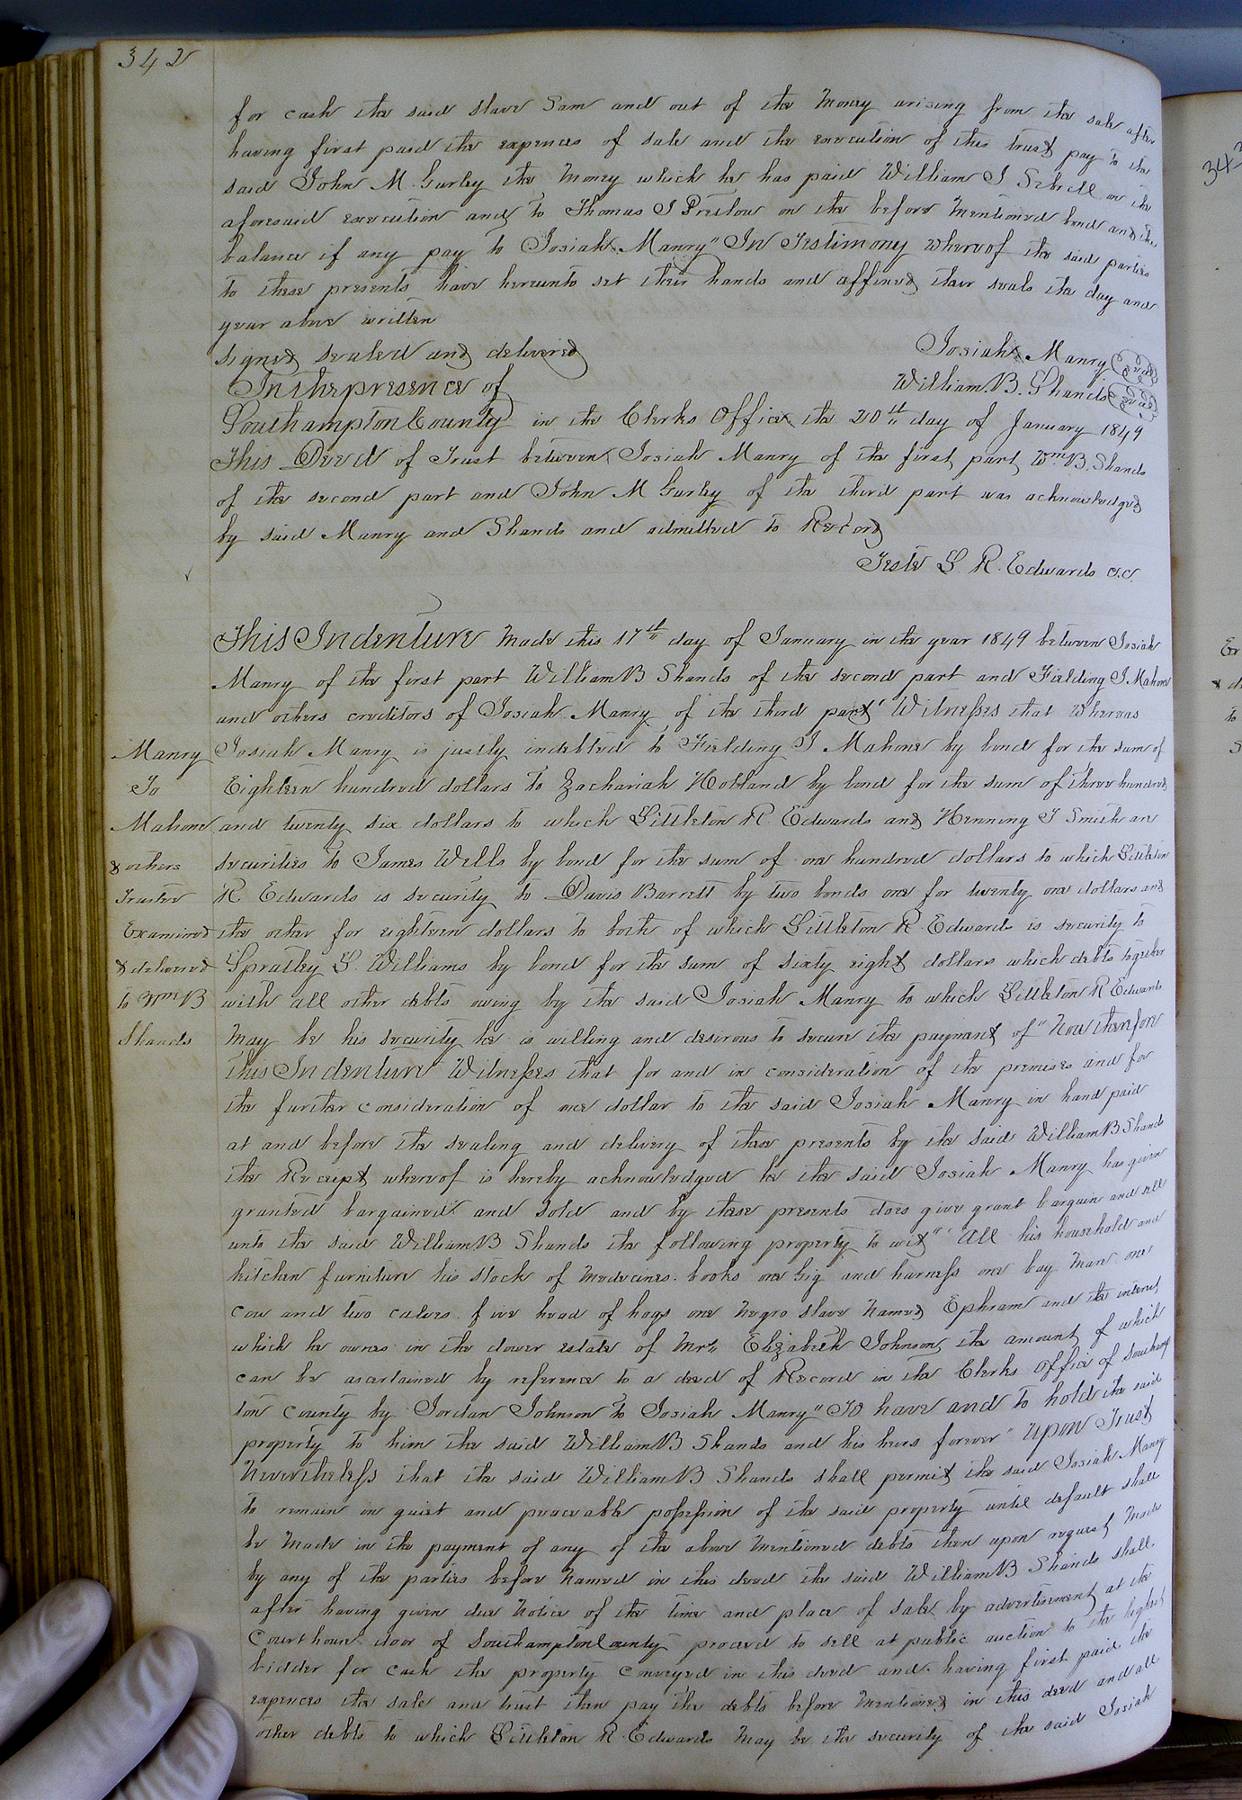 342
for cash the said slave Sam and out of the money arising from the sale after
having first paid the expences of sale and the execution of this trust pay to the
said John M. Gurley the Money which he has paid William J on the
aforesaid execution and to Thomas J Preslow on the before mentioned bond and the
balance if any pay to Josiah Manry" In Testimony whereof the said parties
to these presents have hereunto set their hands and affixed their seals the day and
year above written
signed sealed and delivered
In the presence of
Josiah Manry Seal
William B. Shands Seal
Southampton County in the Clerks Office the 20th day of January 1849
This Deed of Trust between Josiah Manry of the first part Wm B. Shands
of the second part and John M Gurley of the third part was acknowledged
by said Manry and Shands and admitted to Record
Teste L. R. Edwards c.c.
This Indenture Made this 17th day of January in the year 1849 between Josiah
Manry of the first part William B Shands of the second part and Fielding J Mahone
and others creditors of Josiah Manry of the third part" Witnesses that whereas
Manry
To
Mahone
& others
Trustee
Examined
& delivered
to Wm B
Shands
Josiah Manry is justly indebted to Fielding J Mahone by bond for the sum of
Eighteen hundred dollars to Zachariah Holland by bond for the sum of three hundred
and twenty six dollars to which Littleton R Edwards and Henning T Smith are
securities to James Wells by bond for the sum of one hundred dollars to which Littleton
R Edwards is security to Davis Barrett by two bonds one for twenty one dollars and
the other for eighteen dollars to both of which Littleton R. Edwards is security to
Spratley S. Williams by bond for the sum of sixty eight dollars which debts together
with all other debts owing by the said Josiah Manry to which Littleton R Edwards
may be his security he is willing and desirous to secure the payment of" Now therefore
this Indenture Witnesses that for and in consideration of the premises and for
the further consideration of one dollar to the said Josiah Manry in hand paid
at and before the sealing and delivery of these presents by the said William B Shands
the Receipt whereof is hereby acknowledged he the said Josiah Manry has given
granted bargained and sold and by these presents does give grant bargain and sell
unto the said William B Shands the following property to wit" All his household and
kitchen furniture his stock of medecines. books one gig and harness one bay Mare one
cow and two calves five head of hogs one Negro slave Named Ephram and the interest
which he ownes in the dower estate of Mrs Elizabeth Johnson, the amount of which
can be ascertained by reference to a deed of Record in the Clerks Office of Southamp
ton County by Jordan Johnson to Josiah Manry" To have and to hold the said
property to him the said William B Shands and his heirs forever" Upon Trust
Nevertheless that the said William B Shands shall permit the said Josiah Manry
to remain in quiet and peaceable possession of the said property until default shall
be Made in the payment of any of the above mentioned debts then upon request made
by any of the parties before named in this deed the said William B Shands shall
after having given due notice of the time and place of sale by advertisement at the
Courthouse door of Southampton County proceed to sell at public auction to the highest
bidder for cash the property conveyed in this deed and having first paid the
expences the sale and trust then pay the debts before mentioned in this deed and all
other debts to which Littleton R. Edwards may be the security of the said Josiah
343